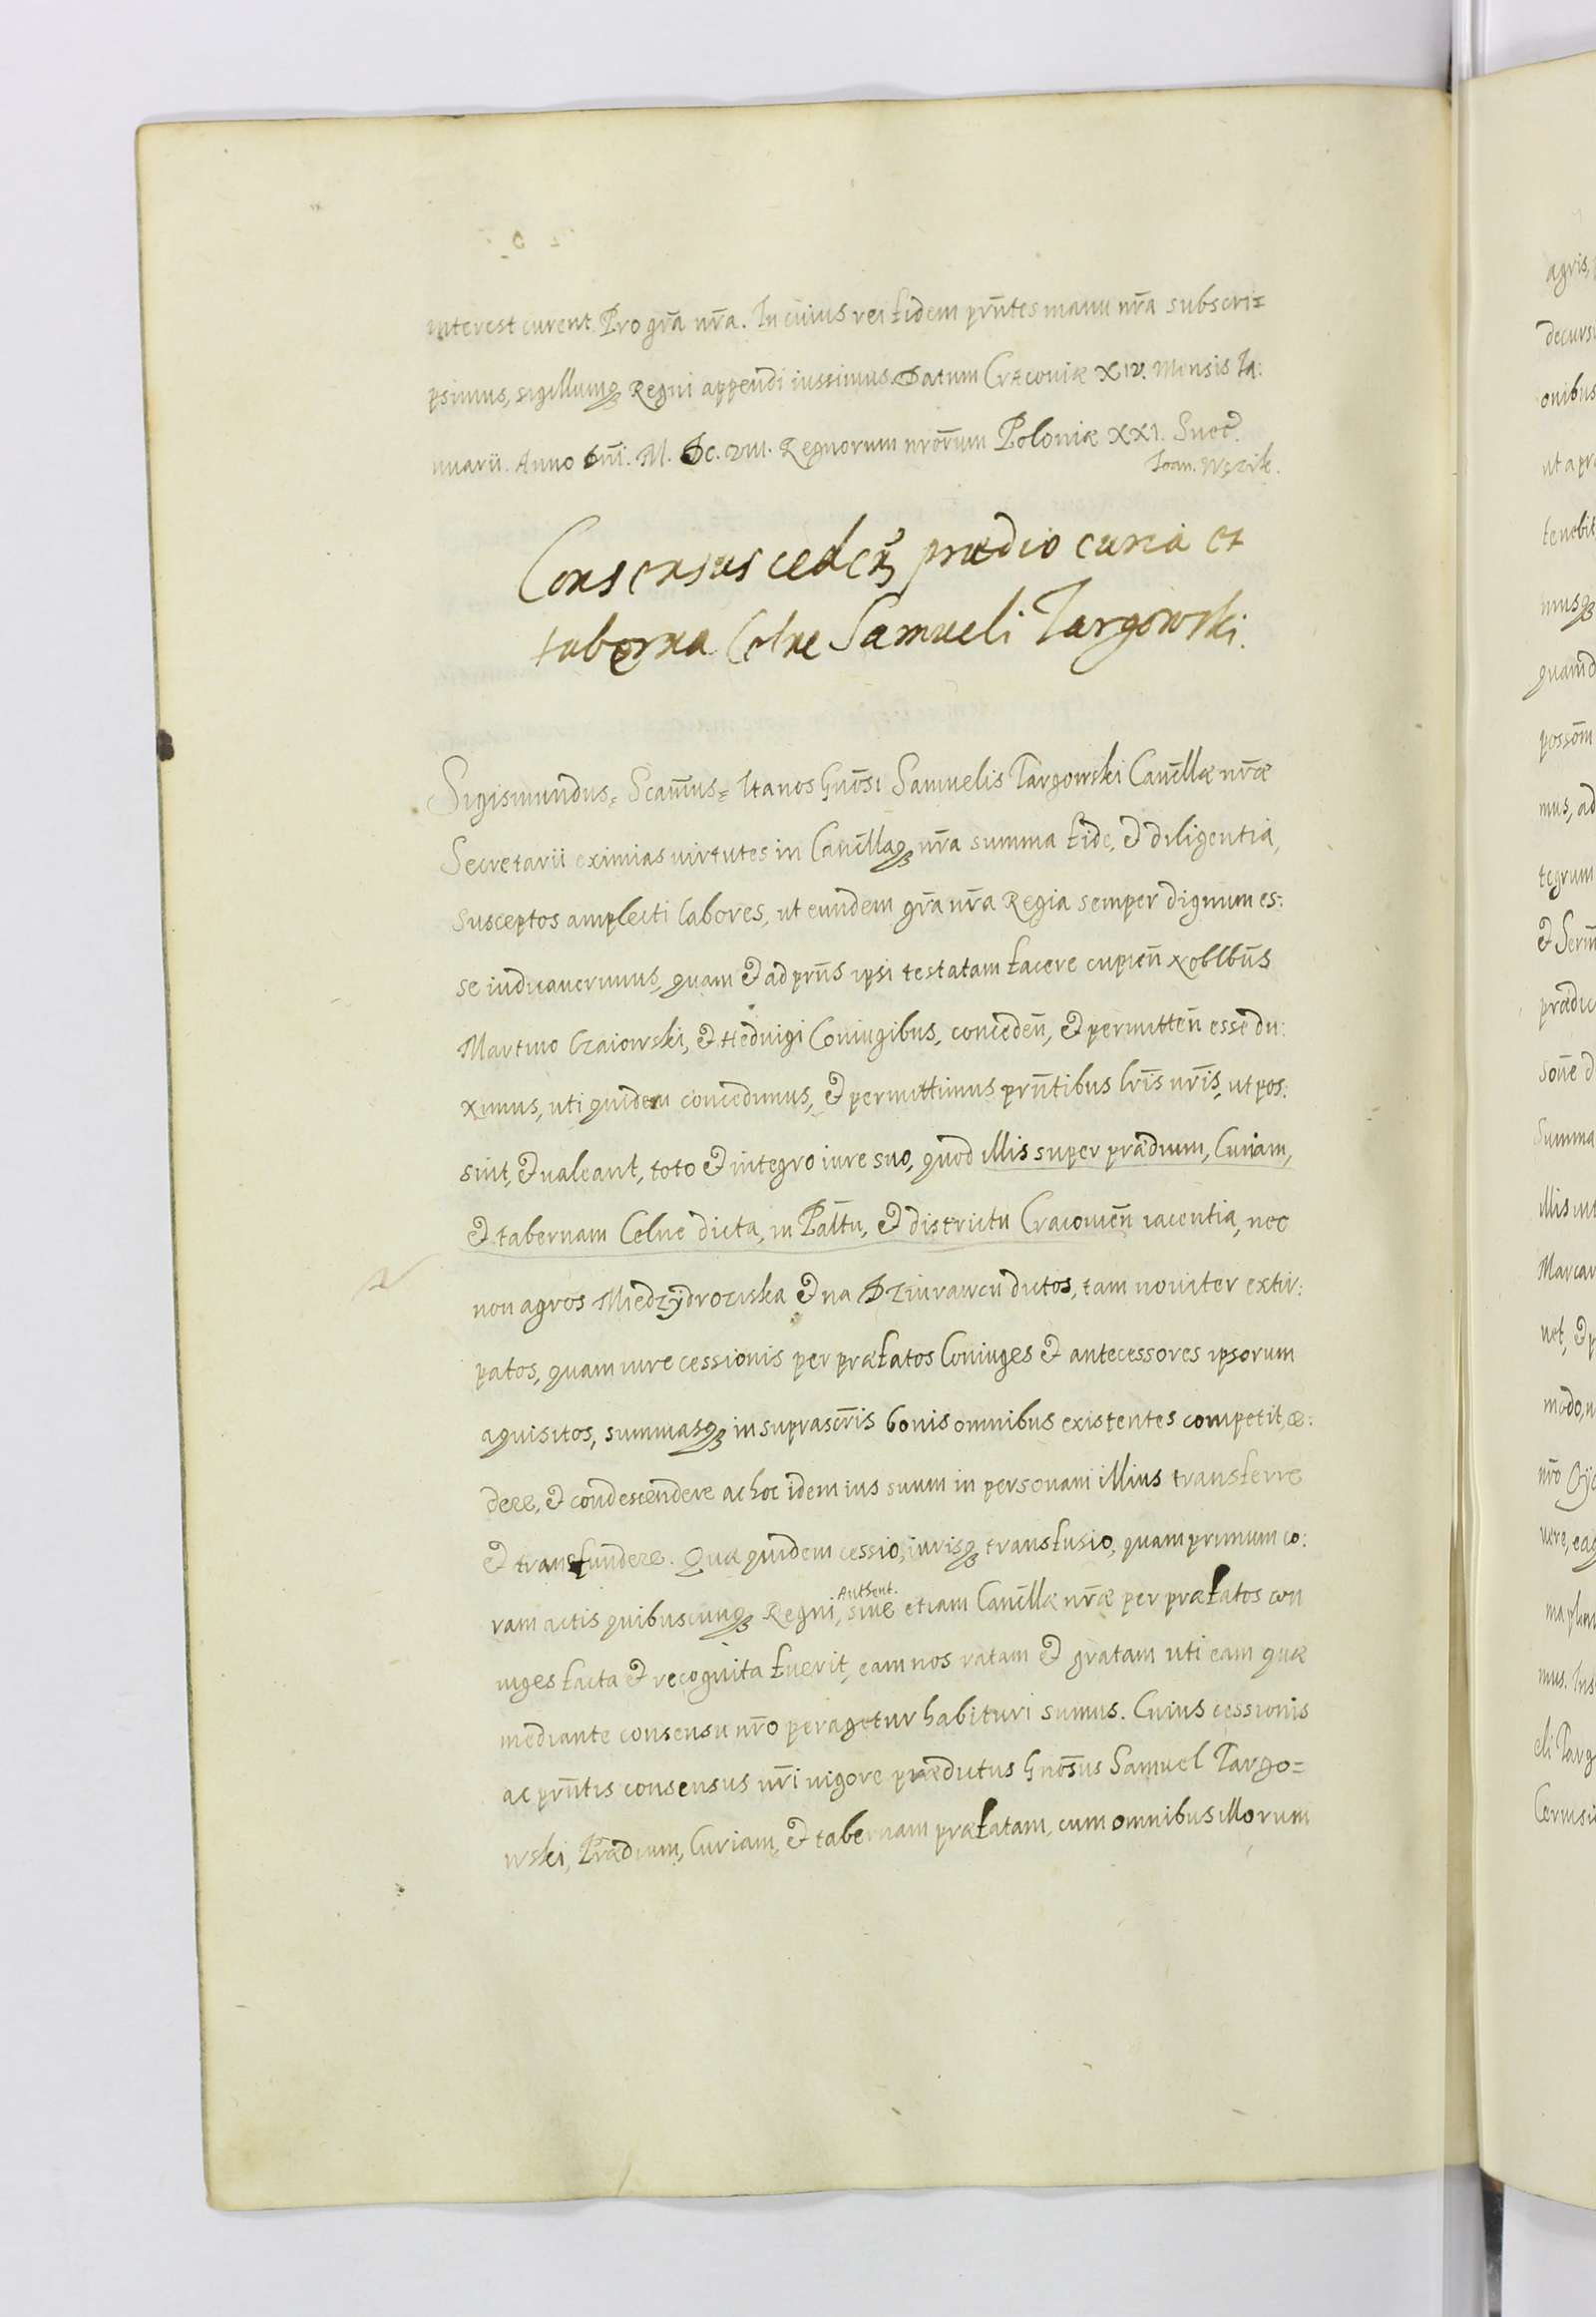 interest curent. Pro gr̃a nr̃a. In cuius rei fidem pr̃ntes manu nr̃a subscri=
psimus, sigillumq₃ Regni appendi iussimus. Datum Cracoviæ XIV. Mensis Ia:
nuarii. Anno Dñi. M. DC. VIII. Regnorum nrōrum Poloniæ XXI. Suec̄.
Ioan. Wężik.
Consensus ceden̄ prædio curia et
taberna Celne Samueli Targowski.
Sigismundus= Scam̄us= Ita nos Gnōsi Samuelis Targowski Canc̄llæ nr̃æ
Secretarii eximias virtutes in Canc̄llaq₃ nr̃a summa fide, & diligentia,
susceptos amplecti labores, ut eundem gr̃a nr̃a Regia semper dignum es:
se iudicaverimus, quam & ad pr̃ns ipsi testatam facere cupien̄
Martino Czaiowski, & Hedvigi Coniugibus, conceden̄, & permitten̄ esse du:
ximus, uti quidem concedimus, & permittimus pr̃ntibus lr̃is nr̃is, ut pos:
sint, & valeant, toto & integro iure suo, quod illis super prædium, Curiam,
& tabernam Celne dicta, in Pal̄tu, & districtu Cracovien̄ iacentia, nec
non agros Miedzÿdroziska & na Dziurawcu dictos, tam noviter extir:
patos, quam iure cessionis per præfatos Coniuges & antecessores ipsorum
aquisitos, summasq₃ in suprascr̃is bonis omnibus existentes competit, ce:
dere, & condescendere ac hoc idem ius suum in personam illius transferre
& transfundere. Quæ quidem cessio, iurisq₃ transfusio, quamprimum co:
ram actis quibuscunq₃ Regni Authent., sive etiam Canc̄llæ nr̃æ per præfatos con
iuges facta & recognita fuerit, eam nos ratam & gratam uti eam quæ
mediante consensu nr̃o peragetur habituri sumus. Cuius cessionis
ac pr̃ntis consensus nr̃i vigore prædictus Gnōsus Samuel Targo=
wski, Prædium, Curiam, & tabernam præfatam, cum omnibus illorum